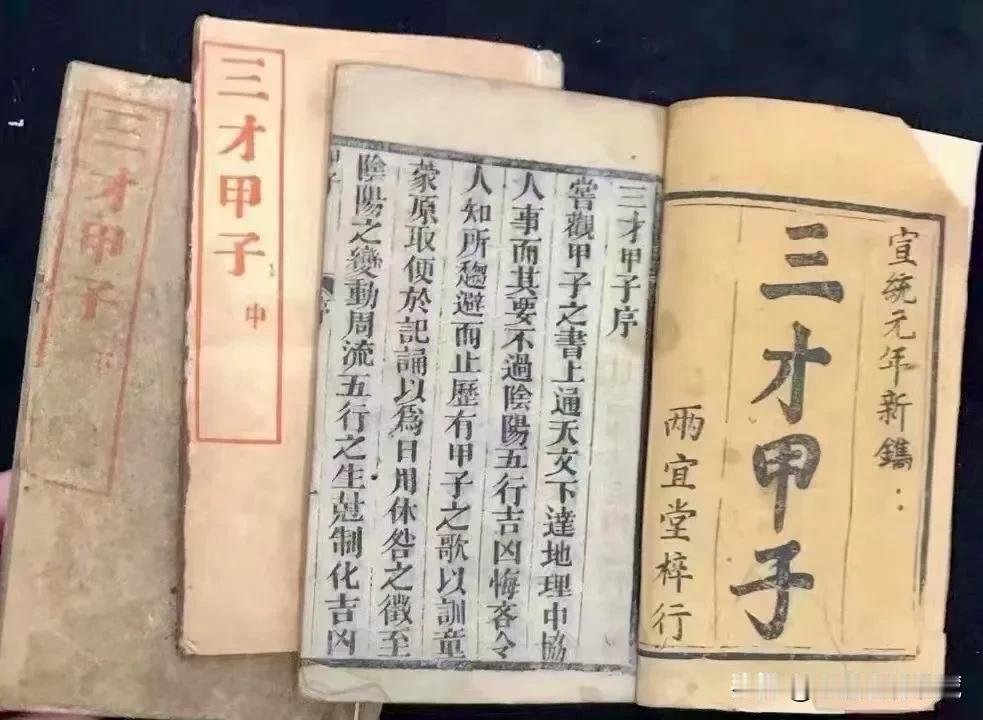 宣統元年新鐫：
三才甲子
兩宜堂梓行
三才甲子序
嘗觀甲子之書上通天文下達地理中協
人事而其要不過陰陽五行吉凶悔吝令
人知所趨避而止歷有甲子之歌以訓童
蒙原取便於記誦以爲日用休咎之徵至
陰陽之變動周流五行之生尅制化吉凶
序
三才甲子
中
三才甲子